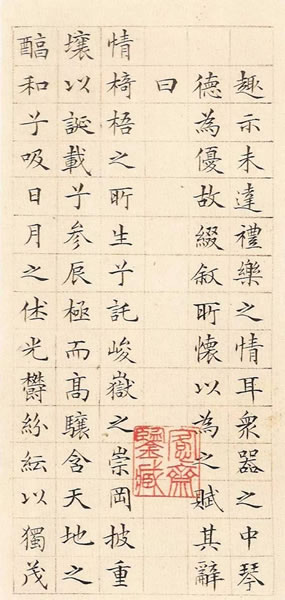 趣亦未達禮樂之情耳衆器之中琴
德為優故綴叙所懷以為之賦其辭
曰
情椅梧之所生兮託峻嶽之崇岡披重
壤以誕載兮参辰極而髙驤含天地之
醕和兮吸日月之休光欝紛紜以獨茂
齋
鑒藏